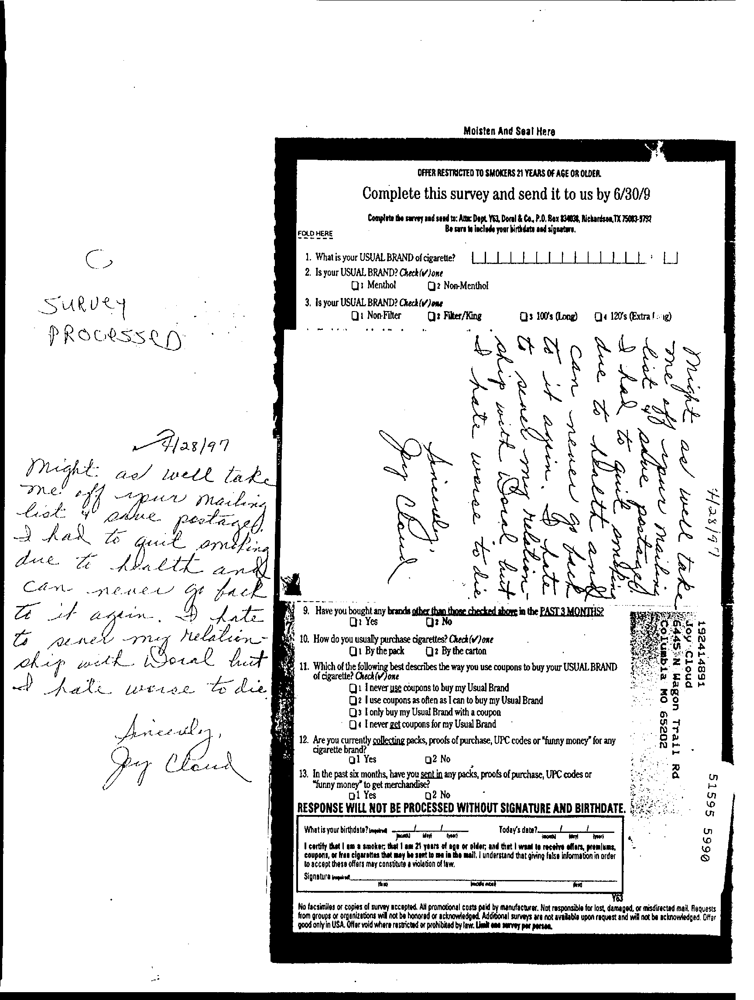 Moisten And Seal Here
OFFER RESTRICTED TO SMOKERS 21 YEARS OF AGE OR OLDER.
Complete this survey and send it to us by 6/30/9
Complete the survey and send to: Attn: Dept. Y63, Doral & Co., P.O. Box 834038, Richardson, TX 75083-9797
Be sure to include your birthdate and signature.
FOLD HERE
1. What is your USUAL BRAND of cigarette?
2. Is your USUAL BRAND? Check (✔) one
1 Menthol 2 Non-Menthol
3. Is your USUAL BRAND? Check (✔) one
1 Non-Filter 2 Filter/King 3 100's (Long) 4 120's (Extra
C
SURVEY
PROCESSED
4/28/97
Might as well take
me off your mailing
list & save postage.
I had to quit smoking
due to health and
can never go back
to it again. I hate
to sever my relation-
ship with Doral but
I hate worse to die.
Sincerely,
Joy Cloud
4/28/97
Might as well take
me off your mailing
list & save postage.
I had to quit smoking
due to health and
can never go back
to it again. I hate
to sever my relation-
ship with Doral but
I hate worse to die.
Sincerely,
Joy Cloud
9. Have you bought any brands other than those checked above in the PAST 3 MONTHS?
1 Yes 2 No
10. How do you usually purchase cigarettes? Check (✔) one
1 By the pack 2 By the carton
11. Which of the following best describes the way you use coupons to buy your USUAL BRAND
of cigarette? Check (✔) one
1 I never use coupons to buy my Usual Brand
2 I use coupons as often as I can to buy my Usual Brand
3 I only buy my Usual Brand with a coupon
4 I never get coupons for my Usual Brand
12. Are you currently collecting packs, proofs of purchase, UPC codes or "funny money" for any
cigarette brand?
1 Yes 2 No
13. In the past six months, have you sent in any packs, proofs of purchase, UPC codes or
"funny money" to get merchandise?
1 Yes 2 No
RESPONSE WILL NOT BE PROCESSED WITHOUT SIGNATURE AND BIRTHDATE.
What is your birthdate? (required) / / Today's date? / /
(month) (day) (year) (month) (day) (year)
I certify that I am a smoker; that I am 21 years of age or older; and that I want to receive offers, premiums,
coupons, or free cigarettes that may be sent to me in the mail. I understand that giving false information in order
to accept these offers may constitute a violation of law.
Signature (required)
(first) (middle initial) (last)
Y63
No facsimiles or copies of survey accepted. All promotional costs paid by manufacturer. Not responsible for lost, damaged, or misdirected mail. Requests
from groups or organizations will not be honored or acknowledged. Additional surveys are not available upon request and will not be acknowledged. Offer
good only in USA. Offer void where restricted or prohibited by law. Limit one survey per person.
192414891
Joy Cloud
5445 N Wagon Trail Rd
Columbia MO 65202
51595 5990